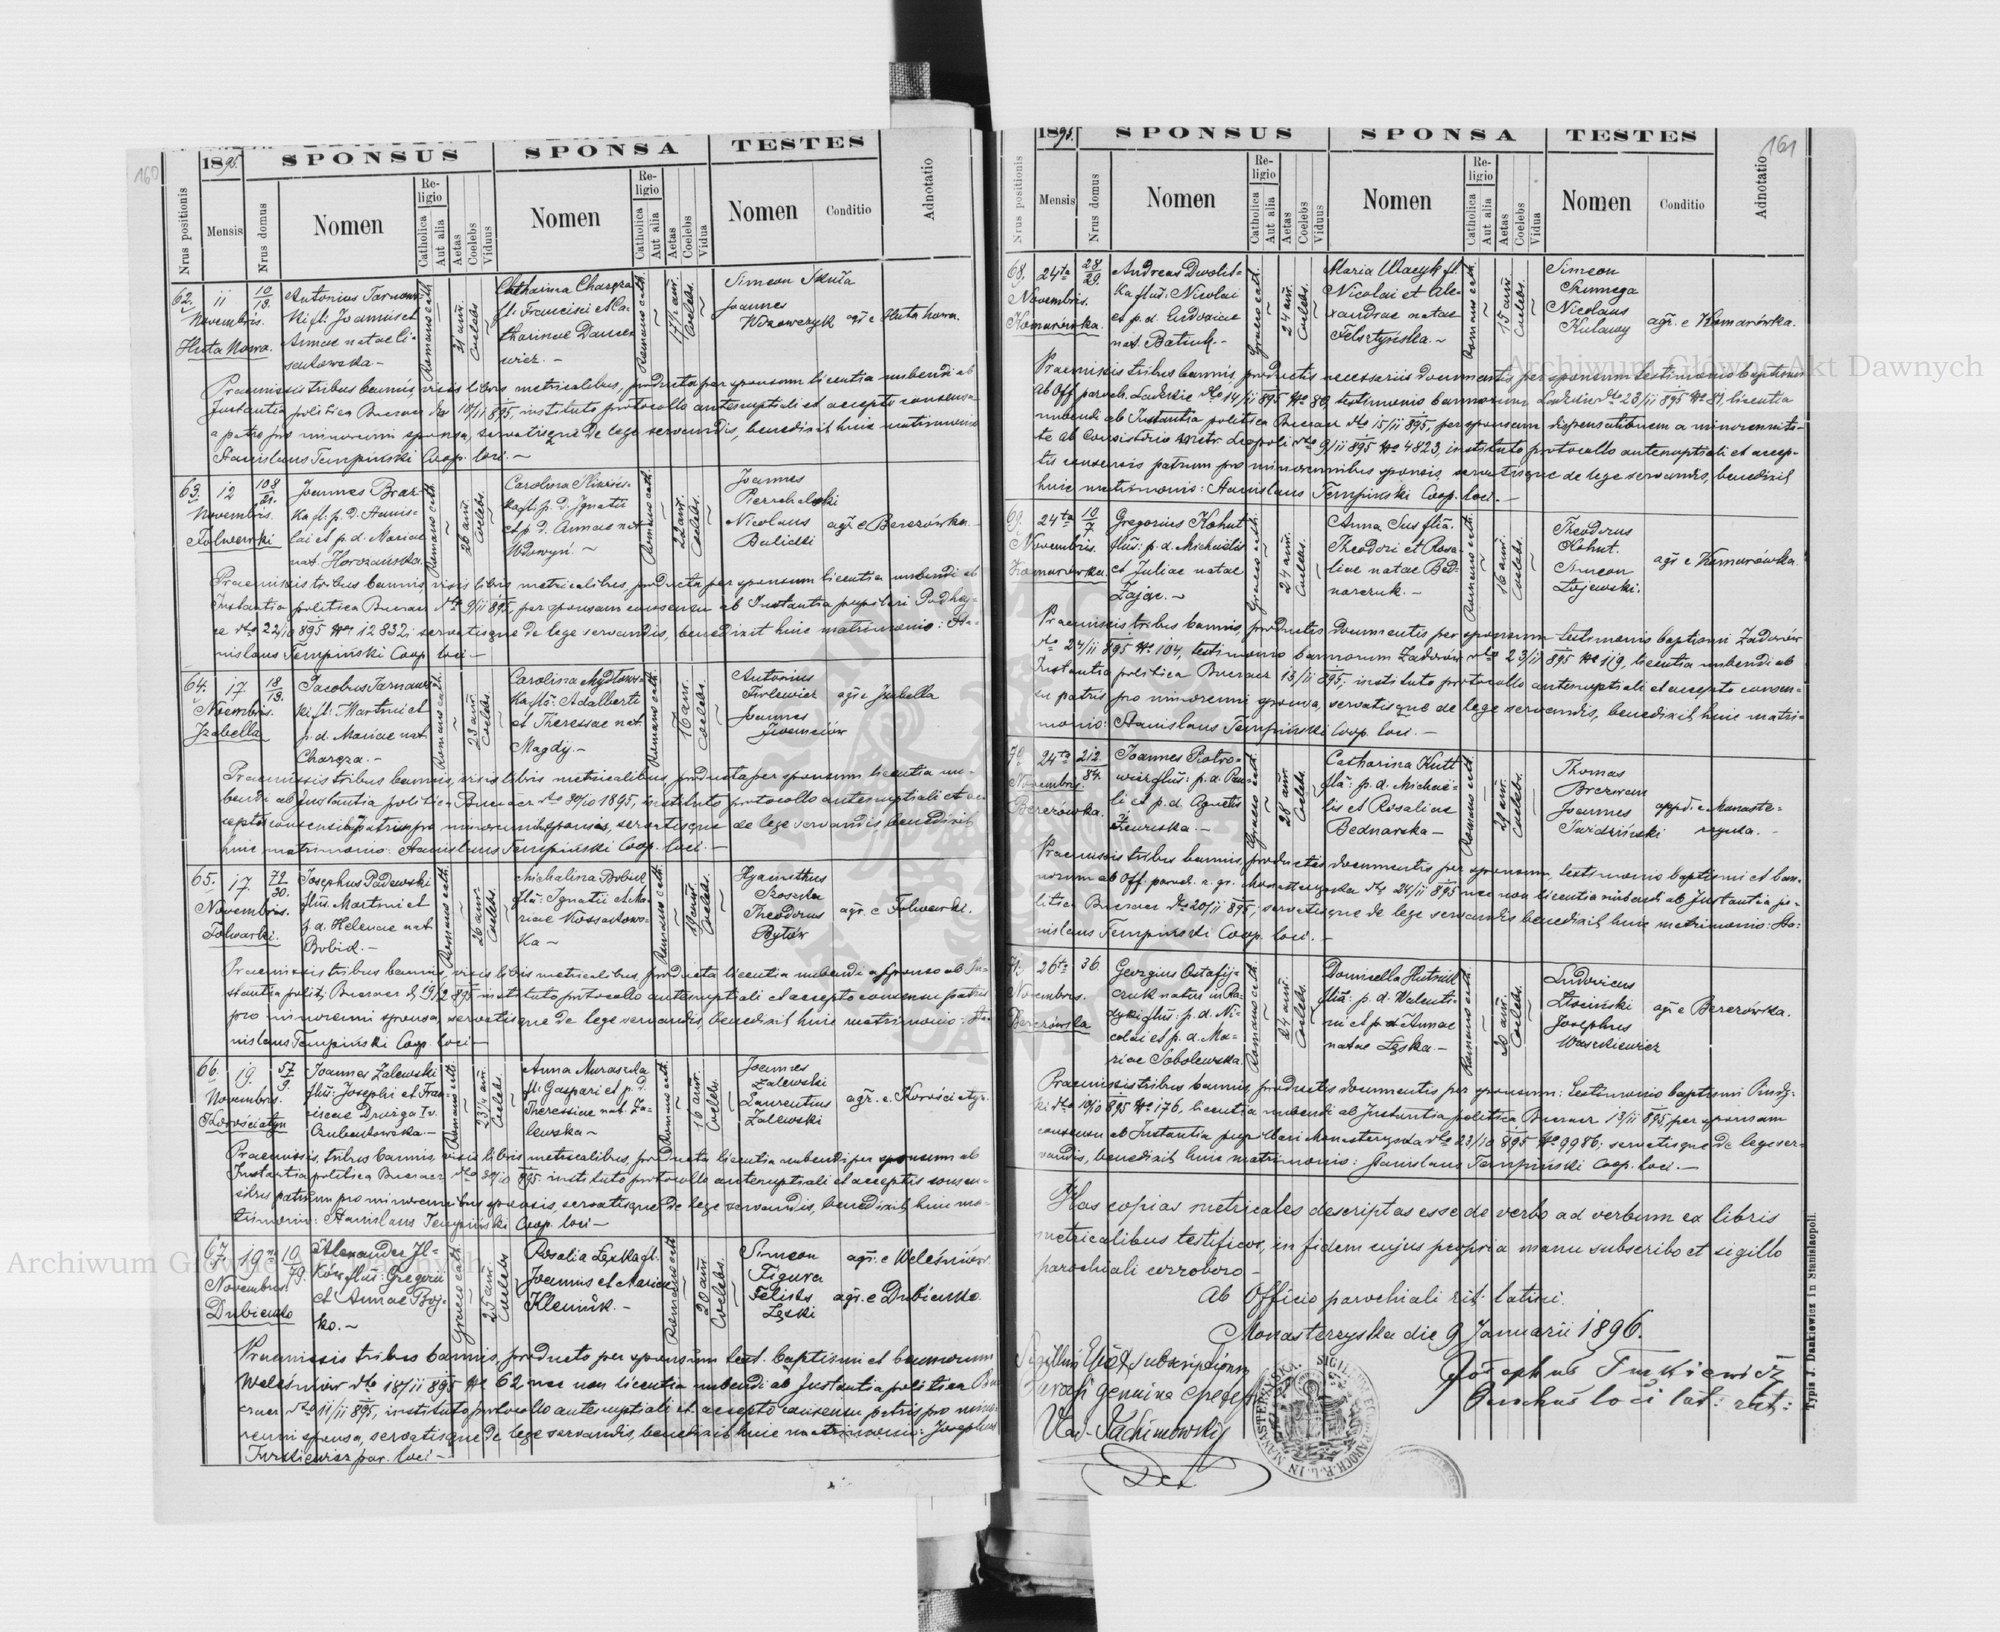 160
1895.
SPONSUS
SPONSA
TESTES
Nrus positionis
Mensis
Nrus domus
Nomen
Religio
Catholica
Aut alia
Aetas
Coelebs
Viduus
Nomen
Religio
Catholica
Aut alia
Aetas
Coelebs
Vidua
Nomen
Conditio
Adnotatio
62. 11 Novembris. Huta Nowa.
10/13.
Antonius Tarnaws-
ki fl: Joannis et
Annae natae Li-
Romano cath.
21 ann.
Coelebs
Catharina Charęza
fl: Francisci et Ca-
tharinae
Romano cath.
17 1/2 ann.
Coelebs.
Simeon Skuła
Joannes
agr. e Huta nowa.
Praemissis tribus bannis, visis libris metricalibus, producta per sponsum licentia nubendi ab
Instantia politica Buczacz dto 10/11 895, instituto protocollo antenuptiali et accepto consensu
a patre pro minorenni sponsa, servatisque de lege servandis, benedixit huic matrimonio
Stanislaus Tempiński Coop. loci. –
63. 12 Novembris. Folwarki
Joannes
ka fl: p. d. Stanis-
lai et p. d. Mariae
nat.
Romano cath.
26 ann.
Coelebs.
Carolina
ka fl: p. d. Ignatii
et p. d. Annae nat.
Wdowyń. –
Romano cath.
22 ann.
Coelebs.
Joannes
Nicolaus
Bulicki
agr. e Berezówka.
Praemissis tribus bannis, visis libris metricalibus, producta per sponsum licentia nubendi ab
Instantia politica Buczacz dto 9/11 895, per sponsam consensu ab Instantia pupillari Podhay-
ce dto 22/10 895 Nro 12832, servatisque de lege servandis, benedixit huic matrimonio: Sta-
nislaus Tempiński Coop. loci –
64. 17 Novembris. Izabella
18/13.
Jacobus Tarnaws-
ki fl: Martini et
p. d. Mariae nat.
Charęza. –
Romano cath.
23 ann.
Coelebs.
Carolina Mydłows-
ka fla: Adalberti
et Theresiae nat.
Magdij. –
Romano cath.
16 ann.
Coelebs.
Antonius
agr. e Izabella
Joannes
Praemissis tribus bannis, visis libris metricalibus, producta per sponsum licentia nu-
bendi ab Instantia politica Buczacz dto 30/10 1895, instituto protocollo antenuptiali et ac-
cepto consensu
servatisque de lege servandis, benedixit
huic matrimonio: Stanislaus Tempiński Coop. loci. –
65. 17. Novembris. Folwarki.
Josephus Padewski
flius: Martini et
p. d. Helenae nat.
Bobik. –
Romano cath.
26 ann.
Coelebs.
Michalina Bobik
fla: Ignatii et Ma-
riae Kossakows-
ka –
Romano cath.
Coelebs.
Hyacinthus
Theodorus
Bytów
agr. e Folwarki.
Praemissis tribus bannis, visis libris metricalibus, producta licentia nubendi a sponso ab In-
stantia polit. Buczacz
instituto protocollo antenuptiali et accepto consensu patris
pro minorenni sponsa, servatisque de lege servandis, benedixit huic matrimonio: Sta-
nislaus Tempiński Coop. loci –
66. 19. Novembris. Korościatyn
57/9.
Joannes Zalewski
flius: Josephi et Fran-
ciscae
Romano cath.
23 1/4 ann.
Coelebs.
Anna
fl: Gaspari et p. d.
Theresiae nat. Za-
lewska –
Romano cath.
16 ann.
Coelebs.
Joannes
Zalewski
Laurentius
Zalewski
agr. e Korościatyn.
Praemissis, tribus bannis, visis libris metricalibus, producta licentia nubendi per sponsum ab
Instantia politica Buczacz dto 30/10 895 instituto protocollo antenuptiali et acceptis consen-
sibus patrum pro minorennibus sponsis, servatisque de lege servandis, benedixit huic ma-
trimonio: Stanislaus Tempiński Coop. loci –
67. 19na Novembris. Dubienko
10/79.
Alexander Il-
ków flius: Gregorii
et Annae Boj-
ko. –
Graeco cath.
25 ann.
Coelebs
Rosalia Łęska fl.
Joannis et Mariae
Klemiuk. –
Romano cath.
20 ann.
Coelebs.
Simeon
Figura
Felicis
Łęski
agr. e Weleśniów.
agr. e Dubienko.
Praemissis tribus bannis, producto per sponsum test. baptismi et bannorum
Weleśniów dto 18/11 895 Nro 62 nec non licentia nubendi ab Instantia politica Bu-
czacz dto 11/11 895, instituto protocollo antenuptiali et accepto consensu patris pro mino-
renni sponsa, servatisque de lege servandis, benedixit huic matrimonio: Josephus
Turkiewicz par. loci –
161
1895.
SPONSUS
SPONSA
TESTES
Nrus positionis
Mensis
Nrus domus
Nomen
Religio
Catholica
Aut alia
Aetas
Coelebs
Viduus
Nomen
Religio
Catholica
Aut alia
Aetas
Coelebs
Vidua
Nomen
Conditio
Adnotatio
68. 24ta Novembris. Komarówka.
28/29.
Andreas Dwolit-
ka flius: Nicolai
et p. d. Eudoxiae
nat. Batiuk. –
Graeco cath.
24 ann.
Coelebs.
Maria Macyk fl.
Nicolai et Ale-
xandrae natae
Felsztyńska. –
Romano cath.
15 ann.
Coelebs.
Simeon
Nicolaus
Kulawy
agr. e Komarówka.
Praemissis tribus bannis, productis necessariis documentis per sponsum testimonio baptismi
ab Off. paroch.
dto 14/11 895 Nro 80, testimonio bannorum
dto 23/11 895 Nro 81, licentia
nubendi ab Instantia politica Buczacz dto 15/11 895, per sponsam dispensationem a minorennita-
te ab Consistorio metr. Leopoli dto 9/11 895 Nro 4823, instituto protocollo antenuptiali et accep-
tis consensis patrum pro minorennibus sponsis, servatisque de lege servandis, benedixit
huic matrimonio: Stanislaus Tempiński Coop. loci. –
69. 24ta Novembris. Komarówka.
10/7.
Gregorius Kohut
flius: p. d. Michaelis
et Juliae natae
Zając. –
Graeco cath.
24 ann.
Coelebs.
Anna Sus flia.
Theodori et Rosa-
liae natae Bed-
narczuk. –
Romano cath.
16 ann.
Coelebs.
Theodorus
Kohut.
Simeon
Łojewski.
agr. e Komarówka.
Praemissis tribus bannis, productis documentis per sponsum testimonio baptismi Zadarów
dto 24/11 895 Nro 104, testimonio bannorum Zadarów dto 23/11 895 Nro 119, licentia nubendi ab
Instantia politica Buczacz 13/11 895, instituto protocollo antenuptiali et accepto consen-
su patris pro minorenni sponsa, servatisque de lege servandis, benedixit huic matri-
monio: Stanislaus Tempiński Coop. loci. –
70. 24ta Novembris. Berezówka.
212/84.
Joannes Piotro-
wicz flius: p. d. Pau-
li et p. d. Agnetis
Graeco cath.
28 ann.
Coelebs.
Catharina Kutt
flia: p. d. Michae-
lis et Rosaliae
Bednarska –
Romano cath.
29 ann.
Coelebs.
Thomas
Joannes
oppid. e Monaste-
rzyska. –
Praemissis tribus bannis, productis documentis per sponsum, testimonio baptismi et ban-
norum ab Off. paroch. r. gr. Monasterzyska dto 24/11 895 nec non licentia nubendi ab Instantia po-
litica Buczacz dto 20/11 895, servatisque de lege servandis benedixit huic matrimonio: Sta-
nislaus Tempiński Coop. loci. –
71. 26ta Novembris. Berezówka
36.
Georgius Ostafij-
czuk natus in
flius: p. d. Ni-
colai et p. d. Ma-
riae Sobolewska.
Romano cath.
24 ann.
Coelebs.
Domicella Hutnik
flia: p. d. Valenti-
ni et p. d. Annae
natae Łęska –
Romano cath.
20 ann.
Coelebs.
Ludovicus
Josephus
Waszkiewicz
agr. e Berezówka.
Praemissis tribus bannis, productis documentis per sponsum: testimonio baptismi
dto 19/10 895 Nro 176, licentia nubendi ab Instantia politica Buczacz 13/11 895, per sponsam
consensu ab Instantia pupillari Monasterzyska dto 22/10 895 Nro 9986, servatisque de lege ser-
vandis, benedixit huic matrimonio: Stanislaus Tempiński Coop. loci. –
Has copias metricales descriptas esse de verbo ad verbum ex libris
metricalibus testificor, in fidem cujus propria manu subscribo et sigillo
parochiali corroboro –
Ab Officio parochiali rit. latini.
Monasterzyska die 9 Januarii 1896.
Josephus Turkiewicz
Parochus loci lat: rit:
Sigillum
subscriptionem
Parochi genuina
Vlad. Jachimowski
Dec.
Typis J. Dankiewicz in Stanislaopoli.
Archiwum Główne Akt Dawnych
Archiwum Główne Akt Dawnych